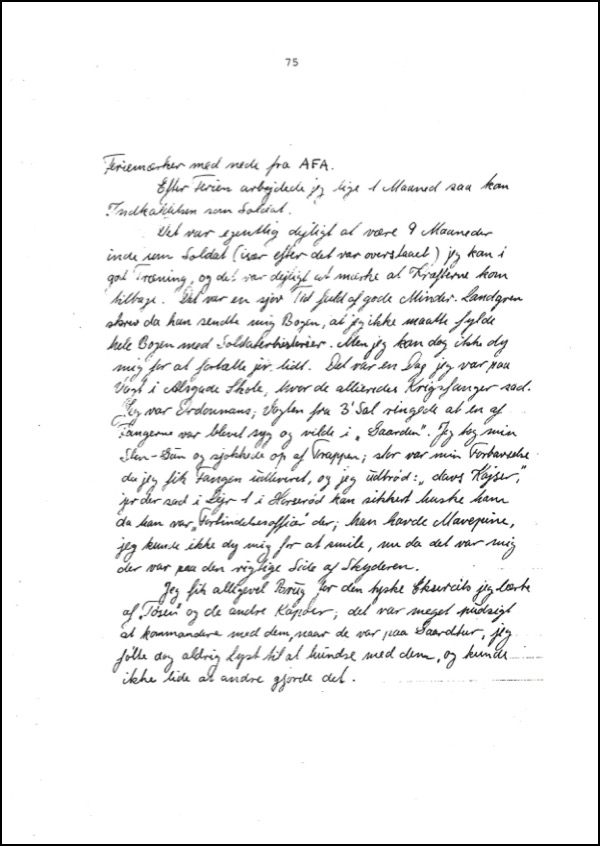 75
Feriemærker med nede fra AFA.
Efter Ferien arbejdede jeg lige 1 Maaned saa kom
Indkaldelsen som Soldat.
Det var egentlig dejligt at være 9 Maaneder
inde som Soldat (især efter det var overstaaet) jeg kom i
god Træning, og det var dejligt at mærke at Kræfterne kom
tilbage. Det var en sjov Tid fuld af gode Minder. Landgren
skrev da han sendte mig Bogen, at jeg ikke maatte fylde
hele Bogen med Soldaterhistorier. Men jeg kan dog ikke dy
mig for at fortælle jer lidt. Det var en Dag jeg var paa
Vagt i Alsgade Skole, hvor de allieredes Krigsfanger sad.
Jeg var Ordonnans; Vagten fra 3' Sal ringede at en af
Fangerne var blevet syg og vilde i "Gaarden". Jeg tog min
Sten-Gun og sjokkede op af Trappen; stor var min Forbavselse
da jeg fik Fangen udleveret, og jeg udbrød: "davs Kajser",
jer der sad i Lejr 1 i Horserød kan sikkert huske ham
da han var "Forbindelsesofficer" der; han havde Mavepine,
jeg kunde ikke dy mig for at smile, nu da det var mig
der var paa den rigtige Side af Skyderen.
Jeg fik alligevel Brug for den tyske Eksercits jeg lærte
af "Tosen" og de andre Kapoer; det var meget pudsigt
at kommandere med dem, naar de var paa Gaardtur, jeg
følte dog aldrig Lyst til at hundse med dem, og kunde
ikke lide at andre gjorde det.